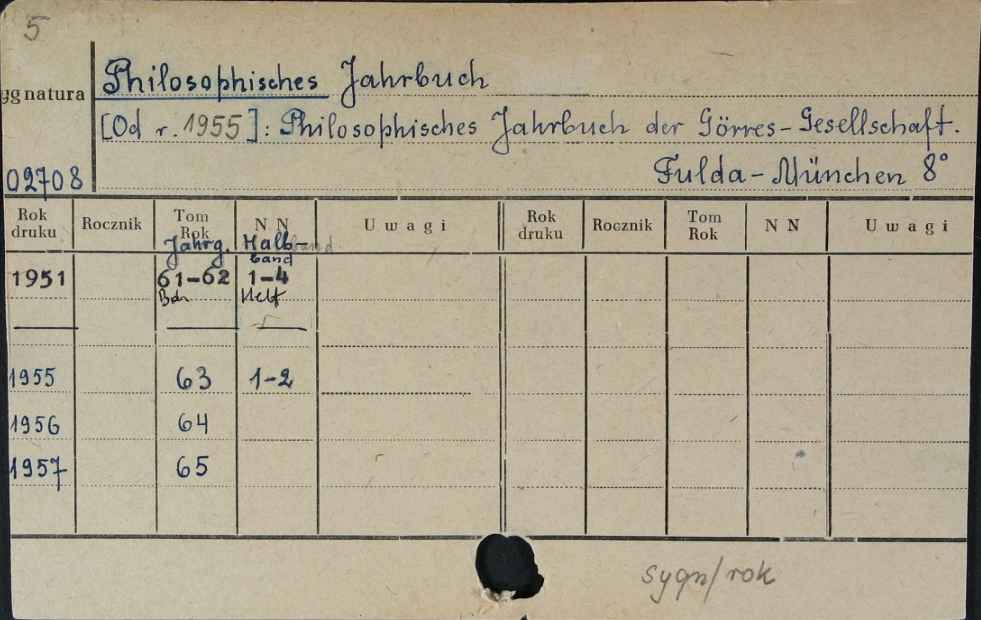 5
Philosophisches Jahrbuch
ygnatura
[Od r. 1955]: Philosophisches Jahrbuch der Görres-Gesellschaft.
02708
Fulda-München 8°
Rok druku Rocznik Tom Rok N N Uwagi Rok druku Rocznik Tom Rok N N Uwagi
Jahrg. Halbband
1951 61-62 1-4
Heft
1955 63 1-2
1956 64
1957 65
sygn/rok